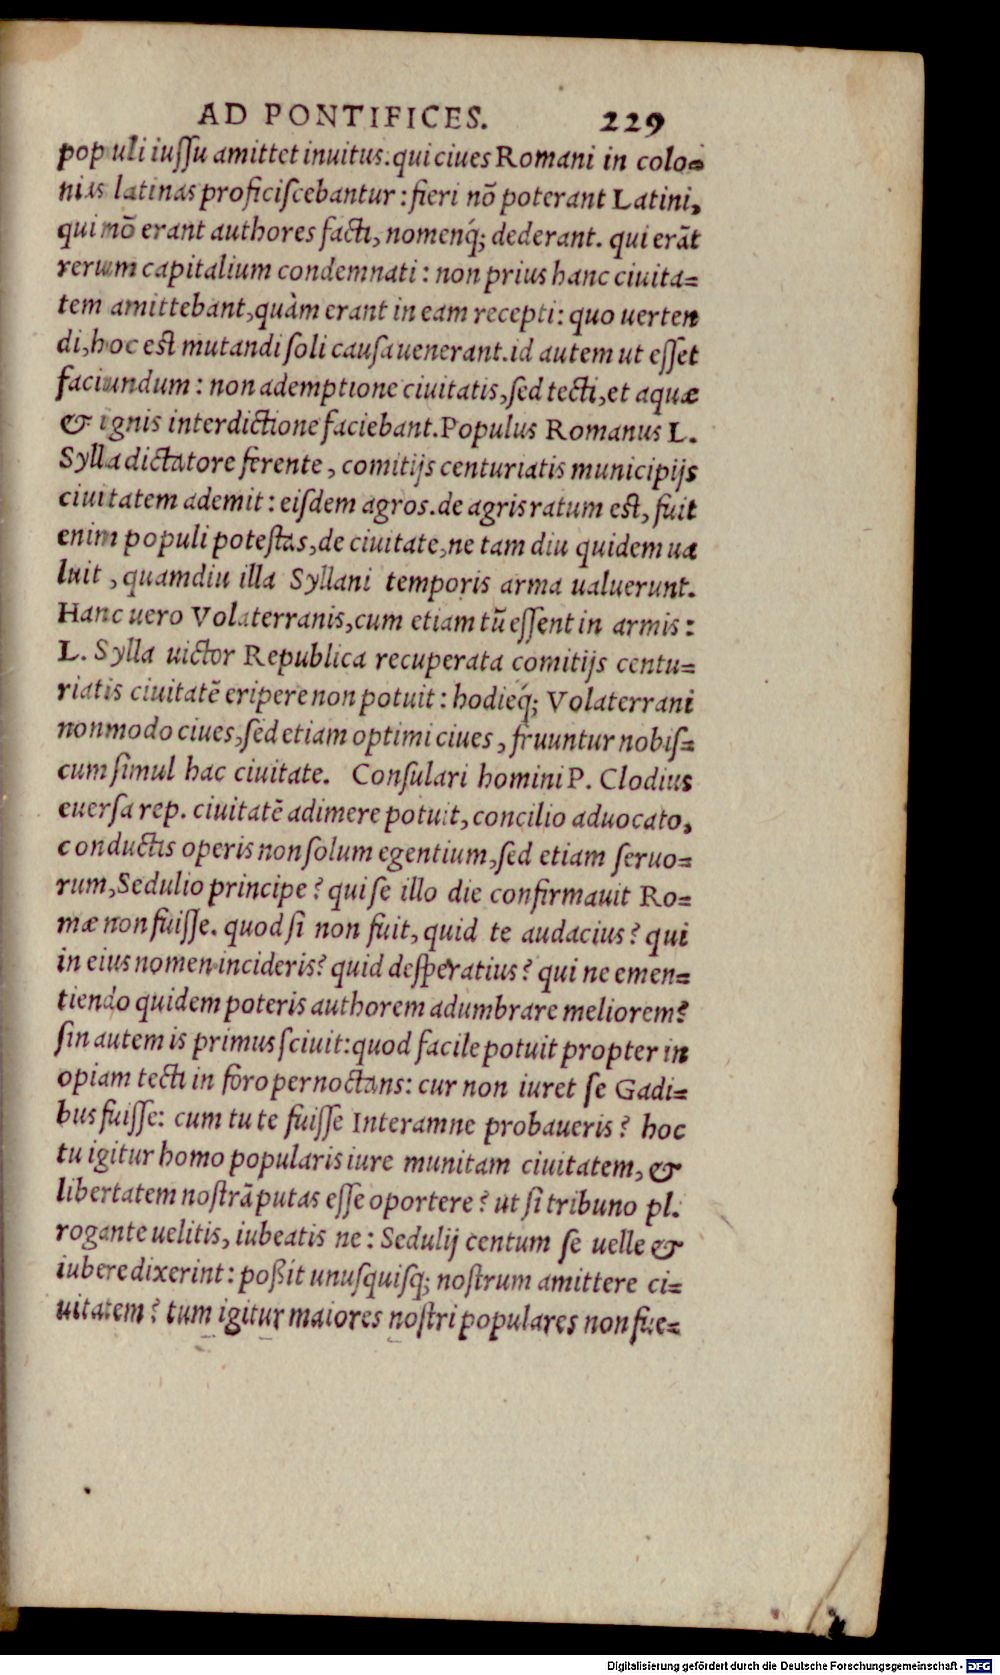 AD PONTIFICES. 229
populi iussu amittet inuitus. qui ciues Romani in colo=
nias latinas proficiscebantur : fieri nō poterant Latini,
qui nō erant authores facti, nomenq́; dederant. qui erāt
rerum capitalium condemnati : non prius hanc ciuita=
tem amittebant, quàm erant in eam recepti : quo uerten
di, hoc est mutandi soli causa uenerant. id autem ut esset
faciundum : non ademptione ciuitatis, sed tecti, et aquæ
& ignis interdictione faciebant. Populus Romanus L.
Sylla dictatore ferente, comitijs centuriatis municipijs
ciuitatem ademit : eisdem agros. de agris ratum est, fuit
enim populi potestas, de ciuitate, ne tam diu quidem ua
luit, quamdiu illa Syllani temporis arma ualuerunt.
Hanc uero Volaterranis, cum etiam tū essent in armis :
L. Sylla uictor Republica recuperata comitijs centu=
riatis ciuitatē eripere non potuit : hodieq́; Volaterrani
non modo ciues, sed etiam optimi ciues, fruuntur nobis=
cum simul hac ciuitate. Consulari homini P. Clodius
euersa rep. ciuitatē adimere potuit, concilio aduocato,
conductis operis non solum egentium, sed etiam seruo=
rum, Sedulio principe? qui se illo die confirmauit Ro=
mæ non fuisse. quod si non fuit, quid te audacius? qui
in eius nomen incideris? quid desperatius? qui ne emen=
tiendo quidem poteris authorem adumbrare meliorem?
sin autem is primus sciuit : quod facile potuit propter in
opiam tecti in foro pernoctans : cur non iuret se Gadi=
bus fuisse : cum tu te fuisse Interamne probaueris? hoc
tu igitur homo popularis iure munitam ciuitatem, &
libertatem nostrā putas esse oportere? ut si tribuno pl.
rogante uelitis, iubeatis ne : Sedulij centum se uelle &
iubere dixerint : poßit unusquisq; nostrum amittere ci=
uitatem? tum igitur maiores nostri populares non fue=
Digitalisierung gefördert durch die Deutsche Forschungsgemeinschaft - DFG